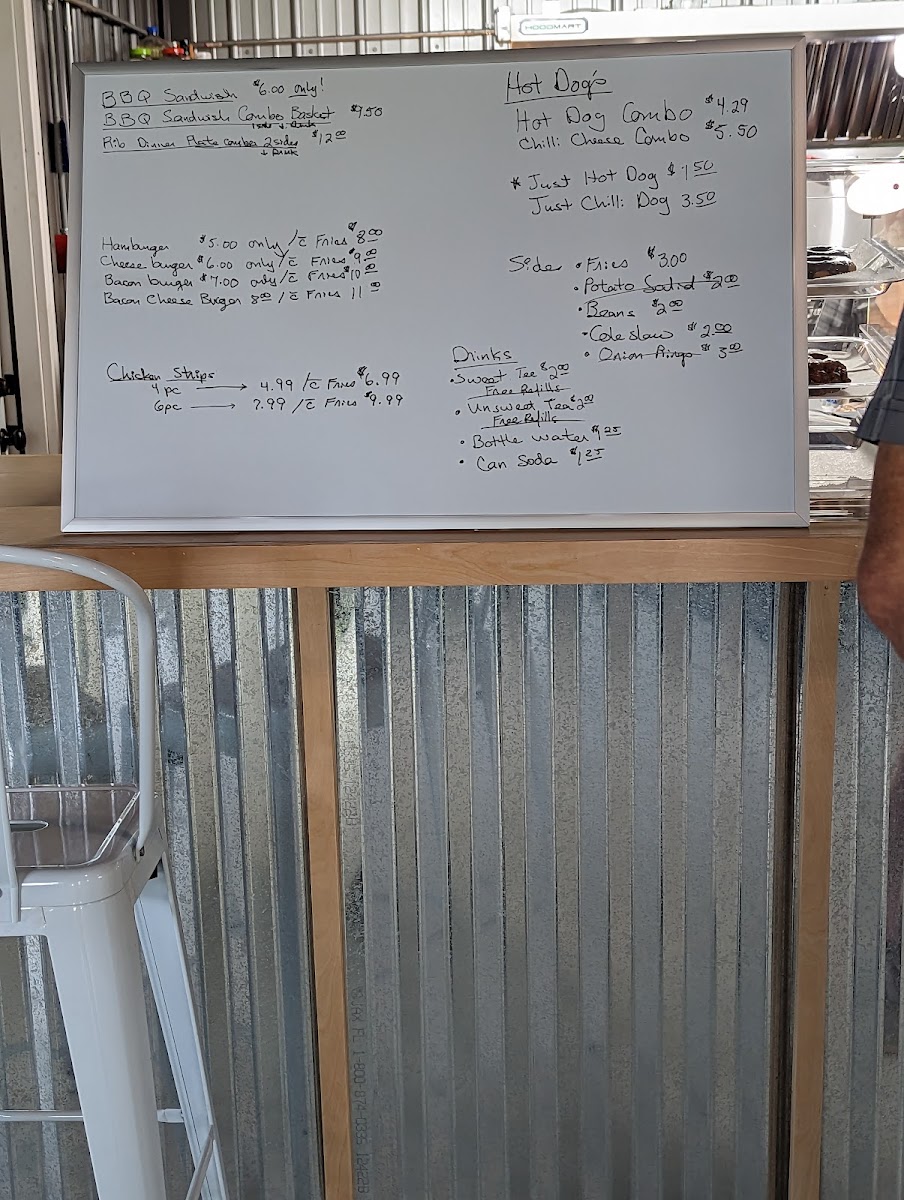 HOODMART
BBQ Sandwish $6.00 only!
BBQ Sandwish Combo Basket $9.50
Rib Dinner Plate combo 2 sides $12.00
↓ Drink
Hamburger $5.00 only / c̄ Fries $8.00
Cheese burger $6.00 only / c̄ Fries $9.00
Bacon burger $7.00 only / c̄ Fries $10.00
Bacon Cheese Burger 8.00 / c̄ Fries 11.00
Chicken Strips
4pc → 4.99 / c̄ Fries $6.99
6pc → 7.99 / c̄ Fries $9.99
Hot Dog's
Hot Dog Combo $4.29
Chili Cheese Combo $5.50
* Just Hot Dog $1.50
Just Chili Dog 3.50
Sides • Fries $3.00
• Potato Salid $2.00
• Beans $2.00
• Coleslaw $2.00
• Onion Rings $3.00
Drinks
• Sweet Tea $2.00
Free Refills
• Unsweet Tea $2.00
Free Refills
• Bottle water $1.25
• Can Soda $1.25